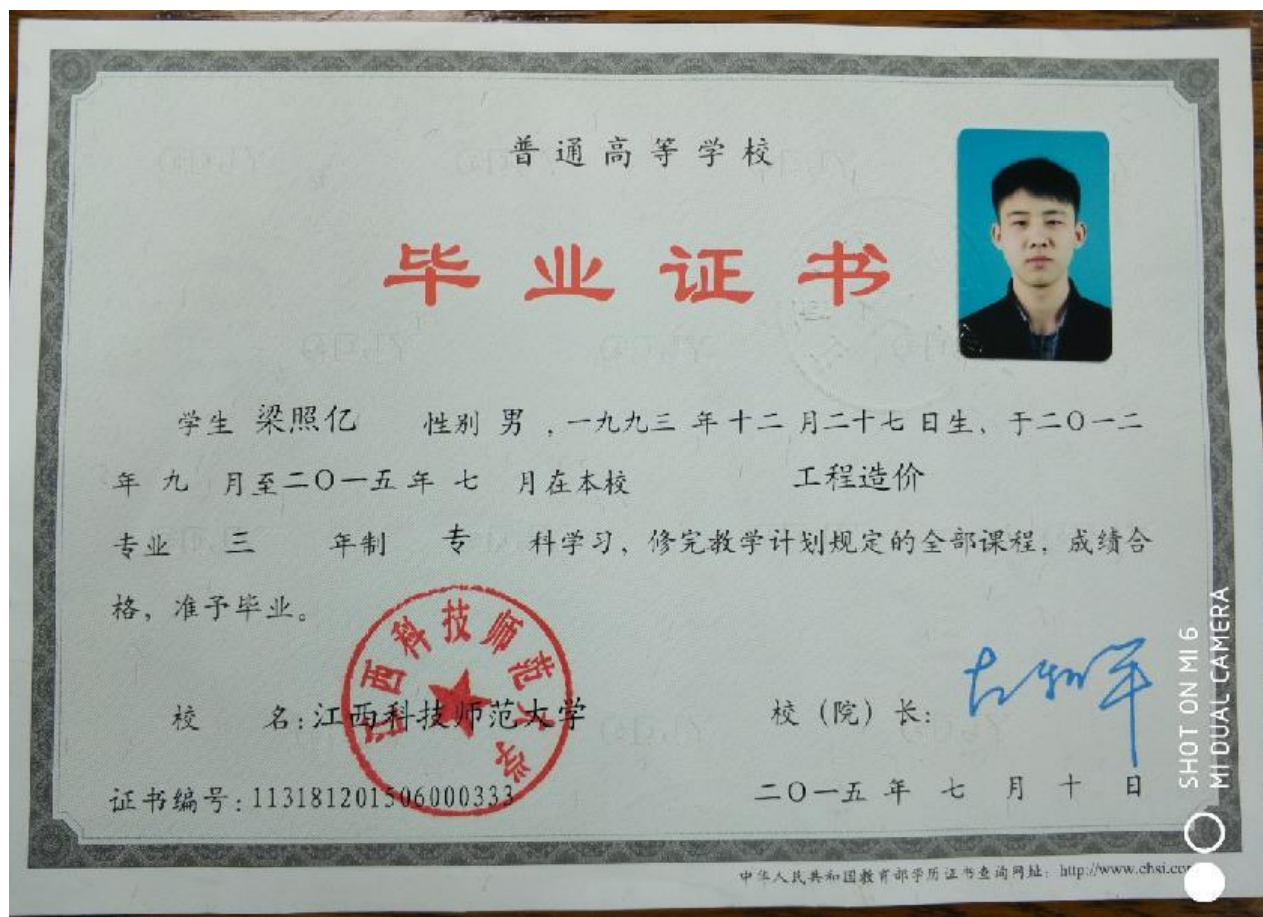 普通高等学校
毕业证书
学生 梁照亿 性别 男 ，一九九三 年 十二 月二十七 日生、于二〇一二
年 九 月至二〇一五 年 七 月在本校 工程造价
专业 三 年制 专 科学习、修完教学计划规定的全部课程，成绩合
格，准予毕业。
江西科技师范大学
校 名:江西科技师范大学 校（院）长:
证书编号:113181201506000333 二〇一五 年 七 月 十 日
中华人民共和国教育部学历证书查询网址: http://www.chsi.co
SHOT ON MI 6
MI DUAL CAMERA